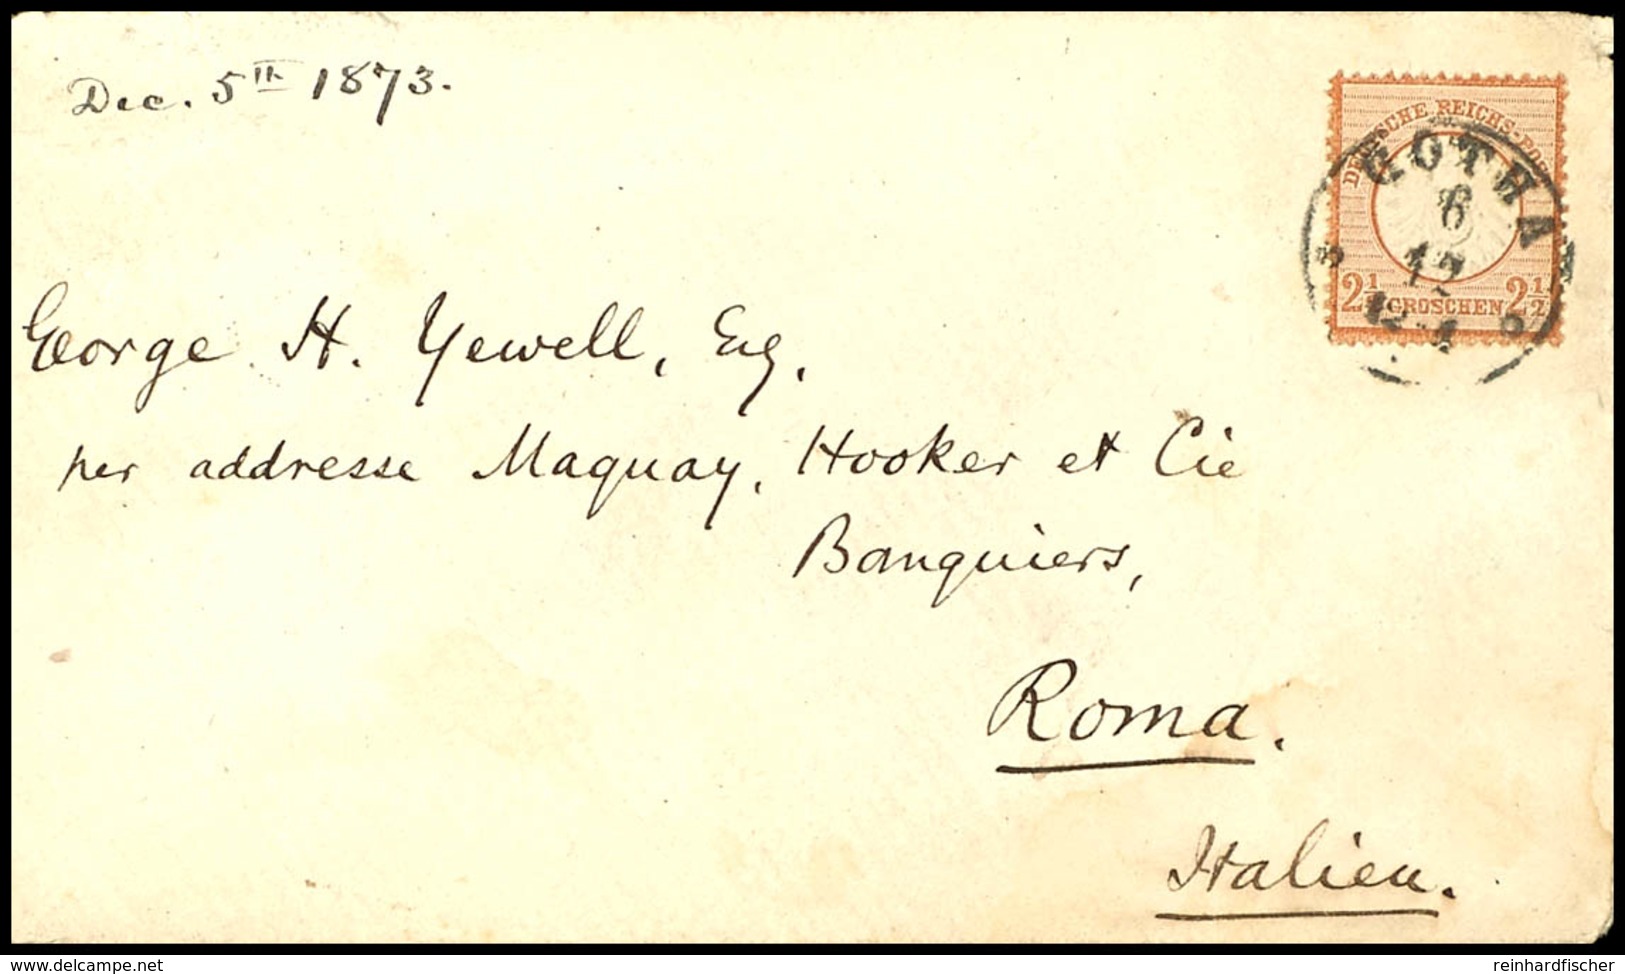 Dec. 5th 1873.
DEUTSCHE REICHS-POST
GOTHA
6
12
2½ GROSCHEN 2½
George H. Yewell, Esq.
per addresse Maquay, Hooker et Cie
Banquiers,
Roma.
Italien.
www.delcampe.net
reinhardfischer